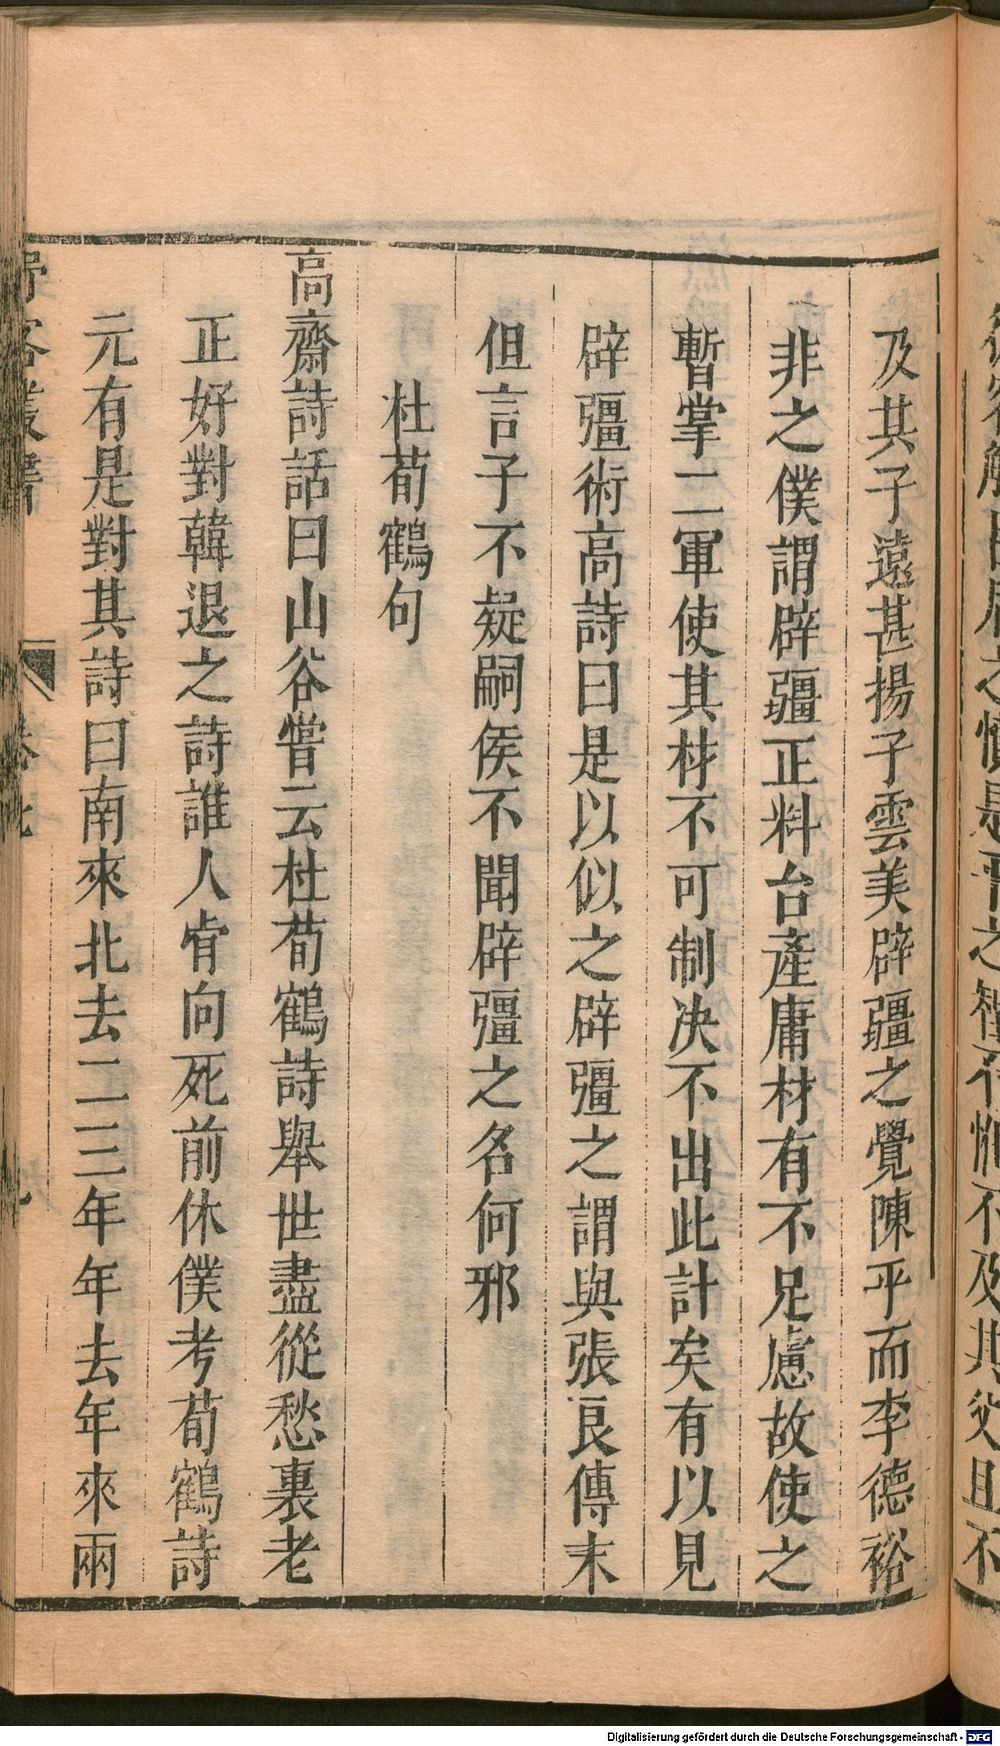 及其子遠甚揚子雲美辟疆之覺陳平而李德裕
非之僕謂辟疆正料台產庸材有不足慮故使之
暫掌二軍使其材不可制决不出此計矣有以見
辟彊術高詩曰是以似之辟彊之謂與張良傳末
但言子不疑嗣侯不聞辟彊之名何邪
杜荀鶴句
高齋詩話曰山谷嘗云杜荀鶴詩舉世盡從愁裏老
正好對韓退之詩誰人肯向死前休僕考荀鶴詩
元有是對其詩曰南來北去二三年年去年來兩
Digitalisierung gefördert durch die Deutsche Forschungsgemeinschaft - DFG